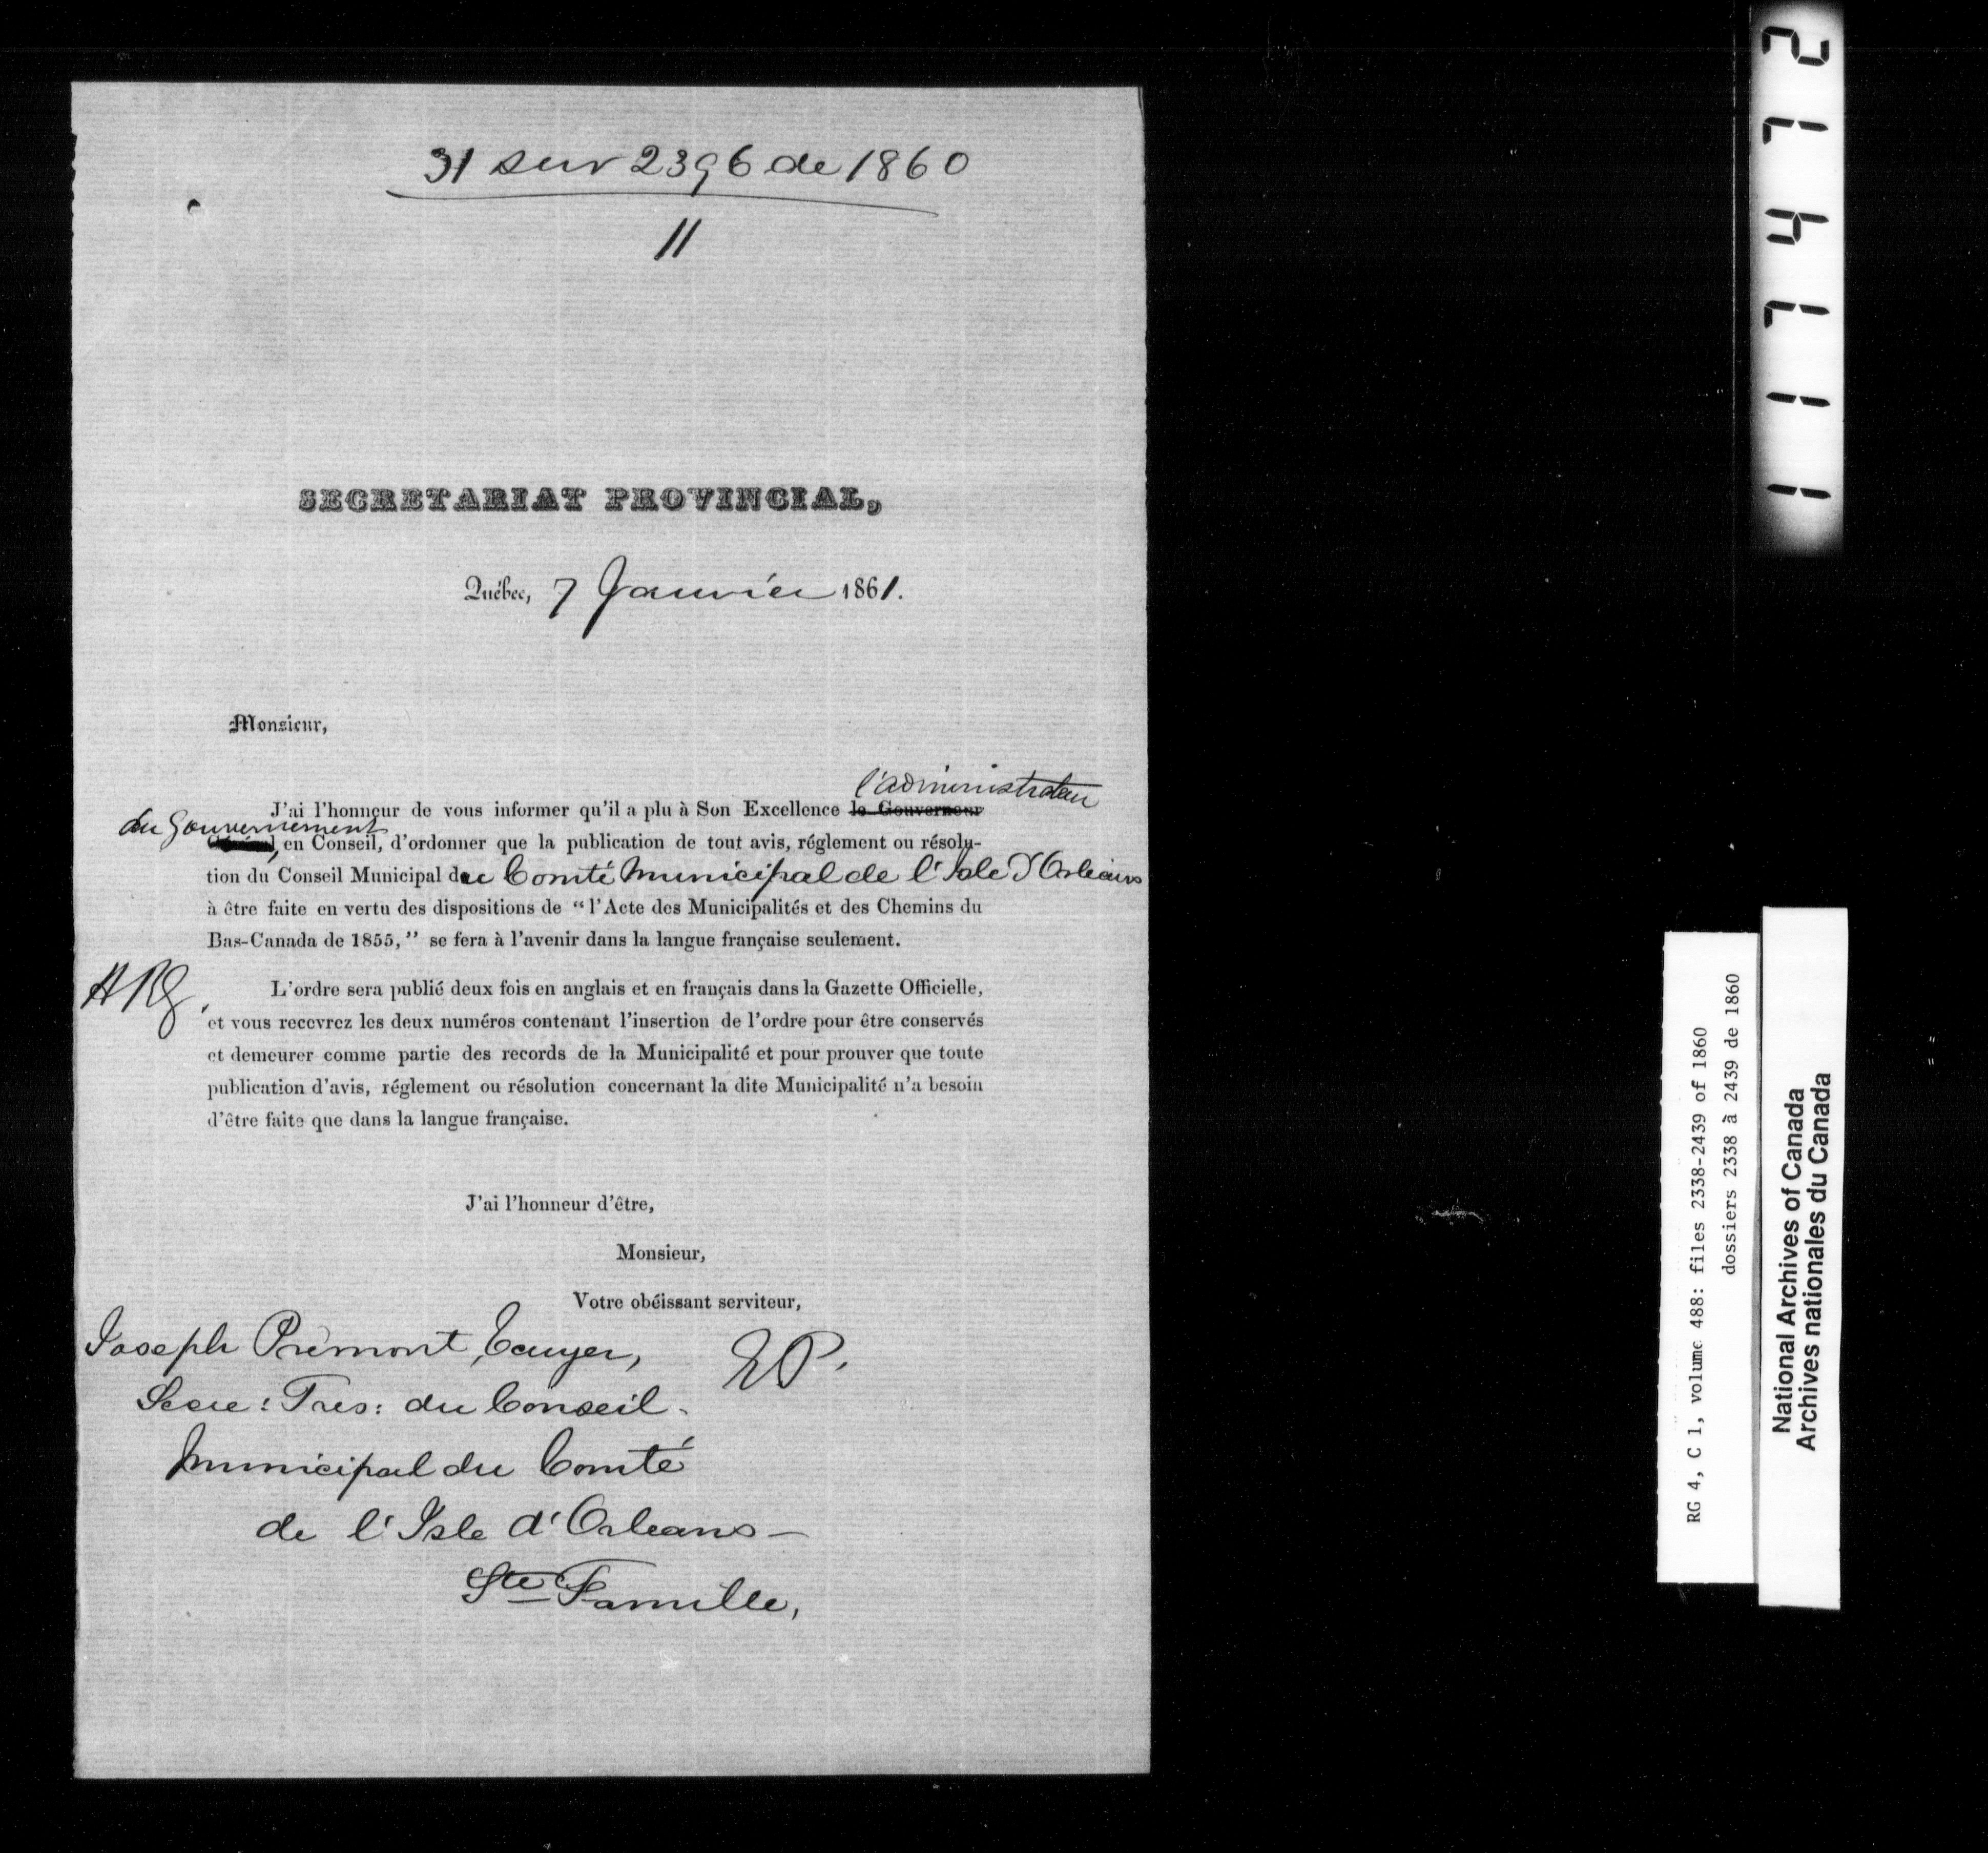 31 sur 2396 de 1860
11
SECRETARIAT PROVINCIAL,
Québec, 7 Janvier 1861.
Monsieur,
l'administrateur
J'ai l'honneur de vous informer qu'il a plu à Son Excellence le Gouverneur
du Gouvernement
en Conseil, d'ordonner que la publication de tout avis, réglement ou résolu-
tion du Conseil Municipal du Comté Municipal de l'Isle d'Orleans
à être faite en vertu des dispositions de “l'Acte des Municipalités et des Chemins du
Bas-Canada de 1855,” se fera à l'avenir dans la langue française seulement.
L'ordre sera publié deux fois en anglais et en français dans la Gazette Officielle,
et vous recevrez les deux numéros contenant l'insertion de l'ordre pour être conservés
et demeurer comme partie des records de la Municipalité et pour prouver que toute
publication d'avis, réglement ou résolution concernant la dite Municipalité n'a besoin
d'être faite que dans la langue française.
J'ai l'honneur d'être,
Monsieur,
Votre obéissant serviteur,
Joseph Prémont, Ecuyer,
Secre: Tres: du Conseil
Municipal du Comté
de l'Isle d'Orleans—
Ste Famille,
1174772
RG 4, C 1, volume 488: files 2338-2439 of 1860
dossiers 2338 à 2439 de 1860
National Archives of Canada
Archives nationales du Canada